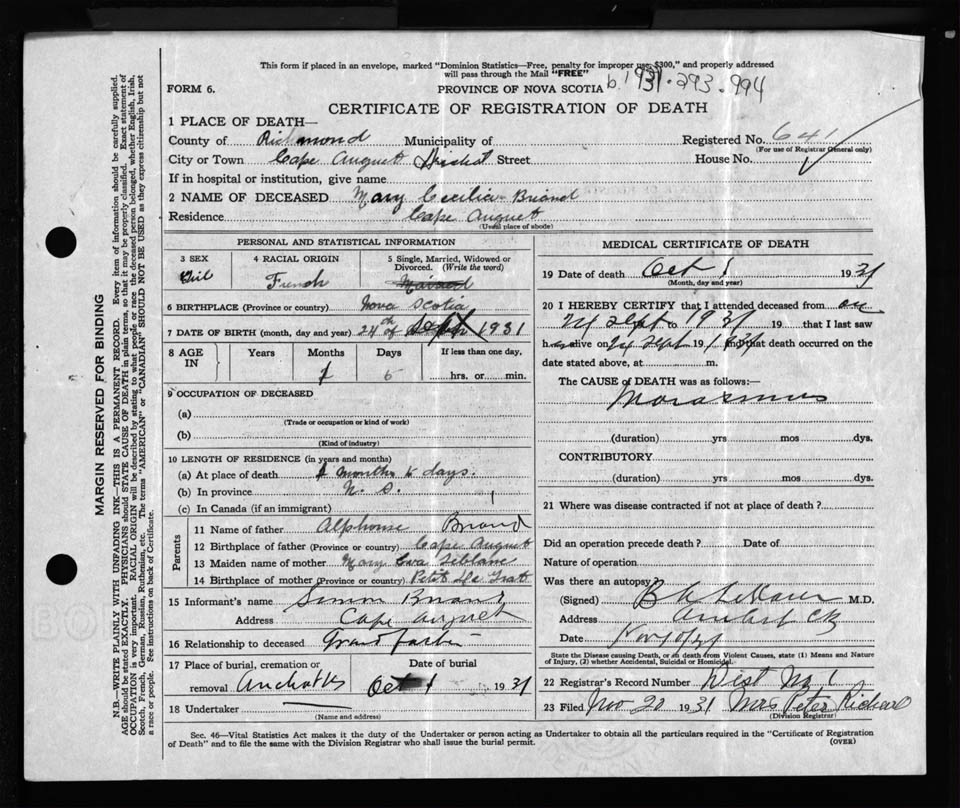 This form if placed in an envelope, marked "Dominion Statistics—Free, penalty for improper use $300," and properly addressed
will pass through the Mail "FREE"
FORM 6. PROVINCE OF NOVA SCOTIA b. 1931. 293. 994
CERTIFICATE OF REGISTRATION OF DEATH
1 PLACE OF DEATH—
County of Richmond Municipality of Registered No. 641
(For use of Registrar General only)
City or Town Cape Auguet Street House No.
If in hospital or institution, give name
2 NAME OF DECEASED Mary Cecilia Briand
Residence Cape Auguet
(Usual place of abode)
PERSONAL AND STATISTICAL INFORMATION
3 SEX 4 RACIAL ORIGIN 5 Single, Married, Widowed or
Divorced. (Write the word)
Girl French
6 BIRTHPLACE (Province or country) Nova Scotia
7 DATE OF BIRTH (month, day and year) 24th of 1931
8 AGE IN Years Months Days If less than one day,
1 5 hrs. or min.
9 OCCUPATION OF DECEASED
(a)
(Trade or occupation or kind of work)
(b)
(Kind of industry)
10 LENGTH OF RESIDENCE (in years and months)
(a) At place of death 1 months 5 days.
(b) In province N. S.
(c) In Canada (if an immigrant)
Parents
11 Name of father Alphonse Briand
12 Birthplace of father (Province or country) Cape Auguet
13 Maiden name of mother Mary Eva Leblanc
14 Birthplace of mother (Province or country) Petit De Grat
15 Informant's name Simon Briand
Address Cape Auguet
16 Relationship to deceased Grand father
17 Place of burial, cremation or Date of burial
removal Arichat Oct 1 1931
18 Undertaker
(Name and address)
MEDICAL CERTIFICATE OF DEATH
19 Date of death Oct 1 1931
(Month, day and year)
20 I HEREBY CERTIFY that I attended deceased from on
24 Sept to 1931 19 that I last saw
h alive on 24 Sept 19 and that death occurred on the
date stated above, at m.
The CAUSE OF DEATH was as follows:—
Marasmus
(duration) yrs mos dys.
CONTRIBUTORY
(duration) yrs mos dys.
21 Where was disease contracted if not at place of death?
Did an operation precede death? Date of
Nature of operation
Was there an autopsy?
(Signed) M.D.
Address Arichat CB
Date Nov
State the Disease causing Death, or in death from Violent Causes, state (1) Means and Nature
of Injury, (2) whether Accidental, Suicidal or Homicidal.
22 Registrar's Record Number Dist No 1
23 Filed Nov 20 1931 Mrs Peter Richard
(Division Registrar)
Sec. 46—Vital Statistics Act makes it the duty of the Undertaker or person acting as Undertaker to obtain all the particulars required in the "Certificate of Registration
of Death" and to file the same with the Division Registrar who shall issue the burial permit. (OVER)
MARGIN RESERVED FOR BINDING
N.B.—WRITE PLAINLY WITH UNFADING INK—THIS IS A PERMANENT RECORD. Every item of information should be carefully supplied.
AGE should be stated EXACTLY. PHYSICIANS should STATE CAUSE OF DEATH in plain terms, so that it may be properly classified. Exact statement of
OCCUPATION is very important. RACIAL ORIGIN will be described by stating to what people or race the deceased person belonged, whether English, Irish,
Scotch, French, German, Russian, Ruthenian, etc. The terms "AMERICAN" or "CANADIAN" SHOULD NOT BE USED as they express citizenship but not
a race or people. See instructions on back of Certificate.